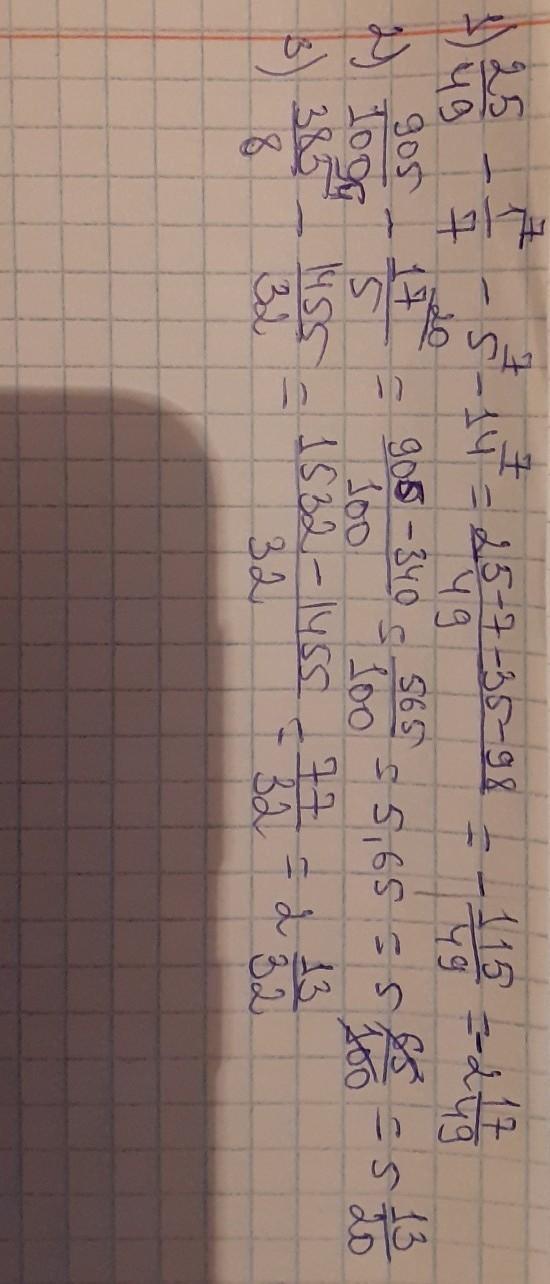 1) 25/49 - 1/7 ^7 - 5 ^7 - 14 ^7 = (25-7-35-98)/49 = - 115/49 = -2 17/49
2) 905/100 - 17/5 ^20 = (905-340)/100 = 565/100 = 5,65 = 5 65/100 = 5 13/20
3) 383/8 ^4 - 1455/32 = (1532-1455)/32 = 77/32 = 2 13/32